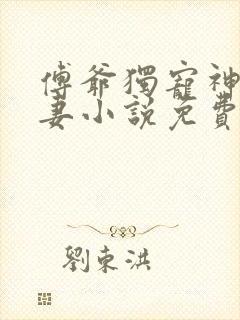 傅爺獨寵神
妻小說免費
劉東洪